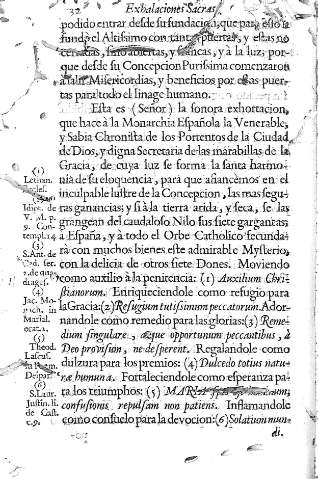 32 Exhalaciones Sacras,
podido entrar desde su fundacion, que para esso la
fundò el Altissimo con tantas puertas, y estas no
cerradas, sino abiertas, y francas, y à la luz; por-
que desde su Concepcion Purissima comenzaron
à salir Misericordias, y beneficios por essas puer-
tas para todo el linage humano.
Esta es (Señor) la sonora exhortacion,
que hace à la Monarchia Española la Venerable,
y Sabia Chronista de los Portentos de la Ciudad
de Dios, y digna Secretaria de las marabillas de la
Gracia, de cuya luz se forma la santa harmo-
nia de su eloquencia, para que afiancèmos en el
inculpable lustre de la Concepcion, las mas segu-
ras ganancias; y si à la tierra arida, y seca, se las
grangean del caudaloso Nilo sus siete gargantas,
à España, y à todo el Orbe Catholico fecunda-
rà con muchos bienes este admirable Mysterio,
con la delicia de otros siete Dones. Moviendo
como auxilio à la penitencia: (1) Auxilium Chri-
stianorum. Enriqueciendole como refugio para
la Gracia: (2) Refugium tutissimum peccatorum. Ador-
nandole como remedio para las glorias: (3) Reme-
dium singulare, atque opportunum peccantibus, à
Deo provisum, ne desperent. Regalandole como
dulzura para los premios: (4) Dulcedo totius natu-
ræ humanæ. Fortaleciendole como esperanza pa-
ra los triumphos: (5)
confusionis repulsam non patiens. Inflamandole
como consuelo para la devocion: (6) Solatium mun-
di.
(1)
Letan.
(2)
V. M. p.
9. Con-
templ. 14
(3)
S. Ant. de
Pad. ser.
2. de
quadrages.
(4)
Jac. Mo-
nach. in
Marial.
orat. 2.
(5)
Theod.
Lascar.
(6)
S. Laur.
Justin. li.
de Cast.
c. 9.